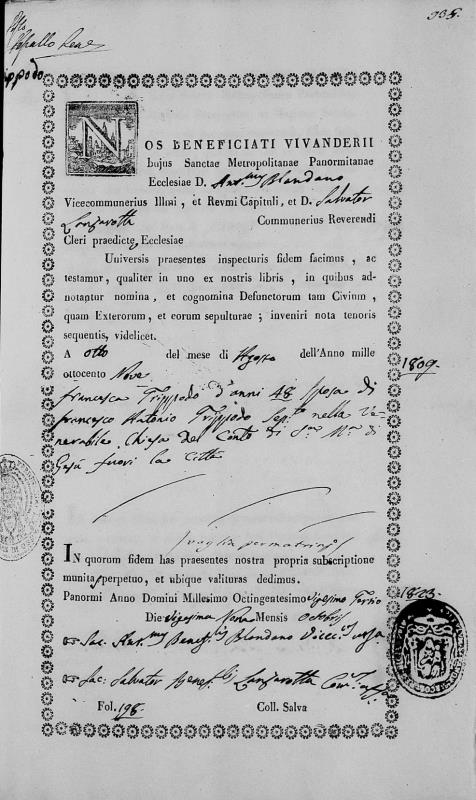 335.
NOS BENEFICIATI VIVANDERII
hujus Sanctae Metropolitanae Panormitanae
Ecclesiae D. Ant.my Blandano
Vicecommunerius Illmi, et Revmi Capituli, et D. Salvator
Lanzarotta Communerius Reverendi
Cleri praedicte Ecclesiae
Universis praesentes inspecturis fidem facimus, ac
testamur, qualiter in uno ex nostris libris, in quibus ad-
notaptur nomina, et cognomina Defunctorum tam Civium,
quam Exterorum, et eorum sepulturae; inveniri nota tenoris
sequentis, videlicet.
A otto del mese di Agosto dell'Anno mille
ottocento Nove 1809.
Francesca Trippodo d'anni 48 sposa di
Francesco Antonio Trippodo Sep.ta nella Ve-
nerabile Chiesa del Con.to di S.ta M.a di
Gesù fuori la Città
IN quorum fidem has praesentes nostra propria subscriptione
munitas perpetuo, et ubique valituras dedimus.
Panormi Anno Domini Millesimo Octingentesimo vigesimo Tertio 1823.
Die vigesima Nona Mensis Octobris
Sac. Ant.my Benef. Blandano
Sac: Salvator Benef. Lanzarotta
Fol. 198. Coll. Salva